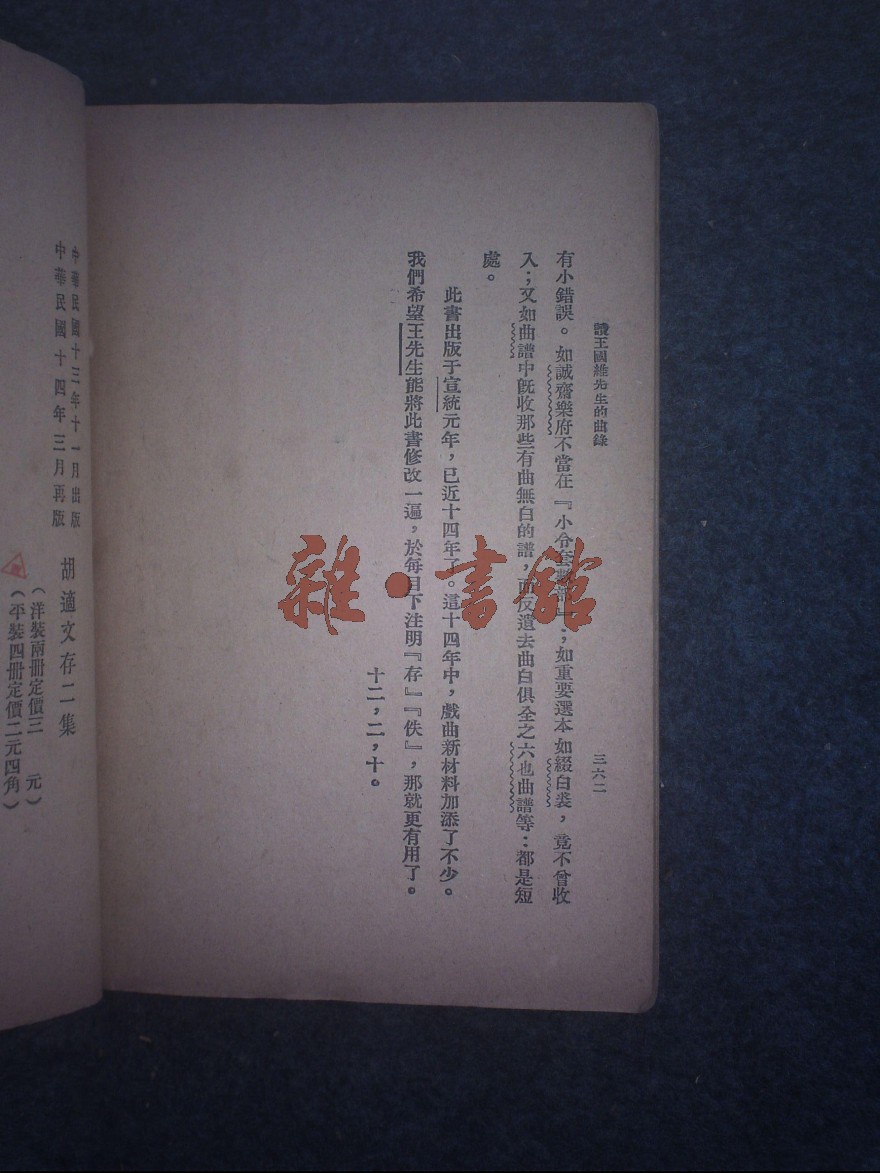 讀王國維先生的曲錄
三六二
有小錯誤。如誠齋樂府不當在『小令套數部』；如重要選本如綴白裘，竟不曾收
入；又如曲譜中旣收那些有曲無白的譜，而反遺去曲白俱全之六也曲譜等：都是短
處。
此書出版于宣統元年，已近十四年了。這十四年中，戲曲新材料加添了不少。
我們希望王先生能將此書修改一遍，於每目下注明『存』『佚』，那就更有用了。
十二，二，十。
中華民國十三年十一月出版
中華民國十四年三月再版
胡適文存二集
（洋裝兩冊定價三元）
（平裝四冊定價二元四角）
雜·書館